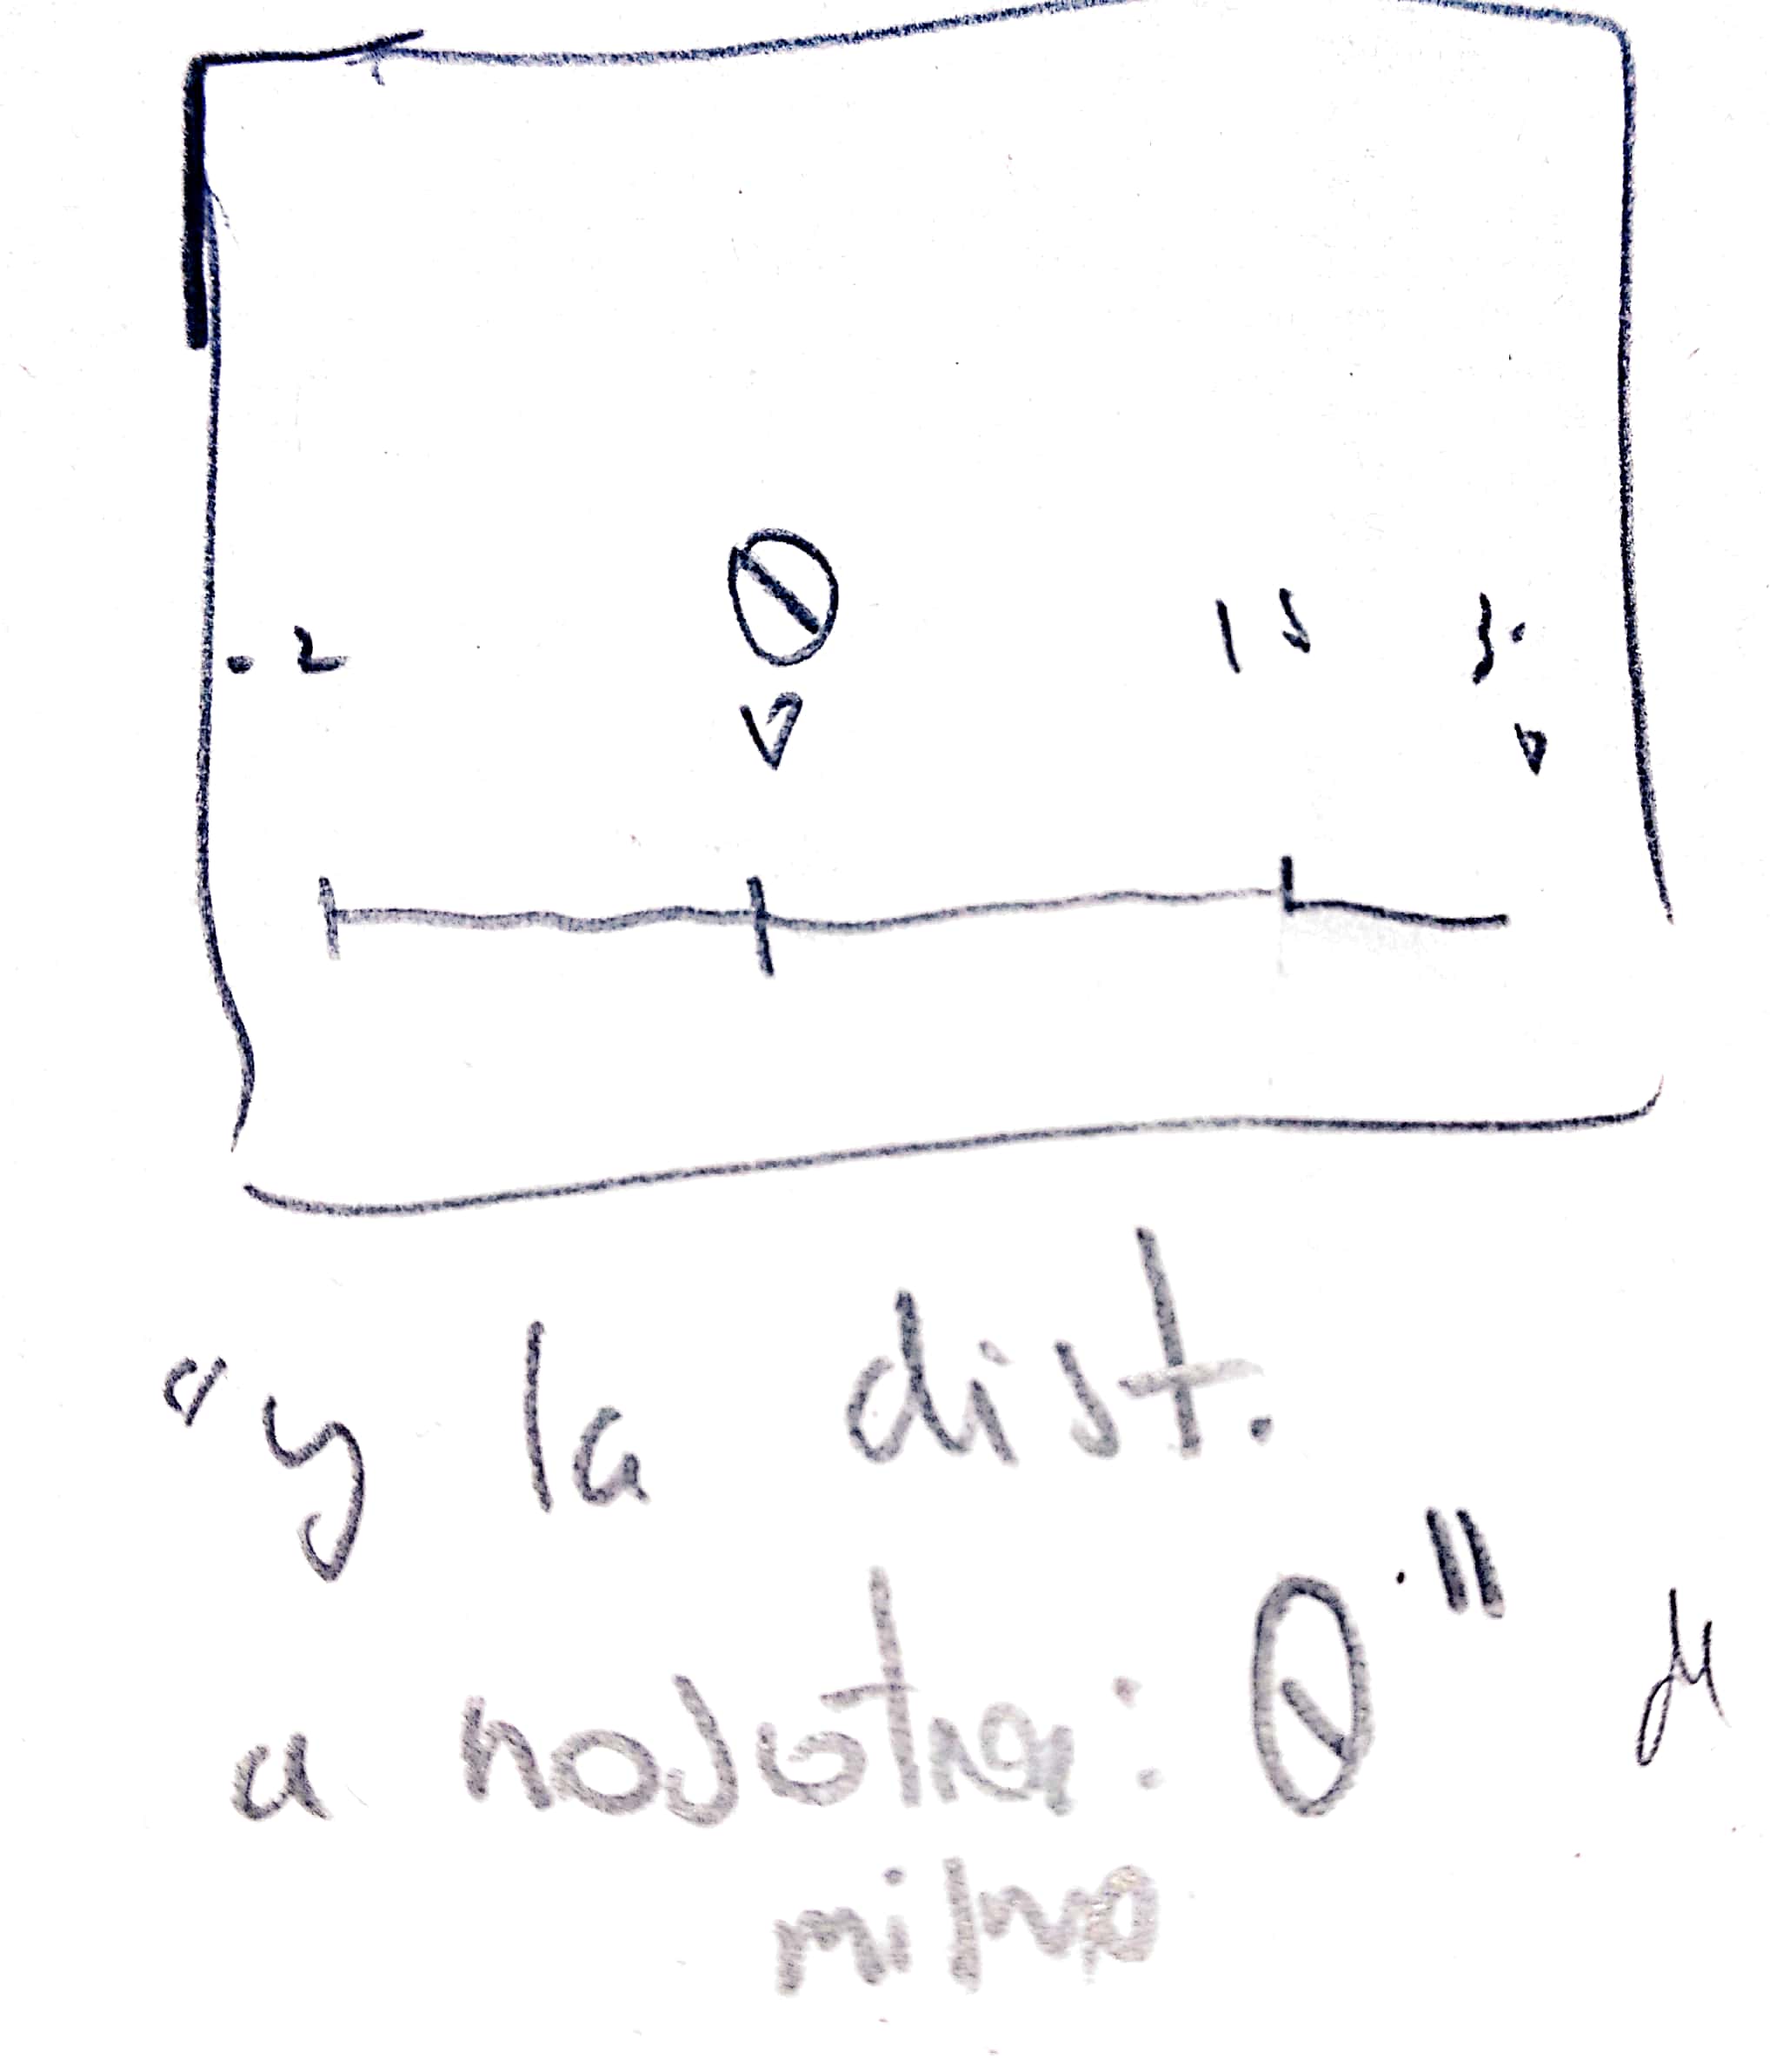 . 2 0 15 3.
"y la dist.
a nosotros: 0."
mismo